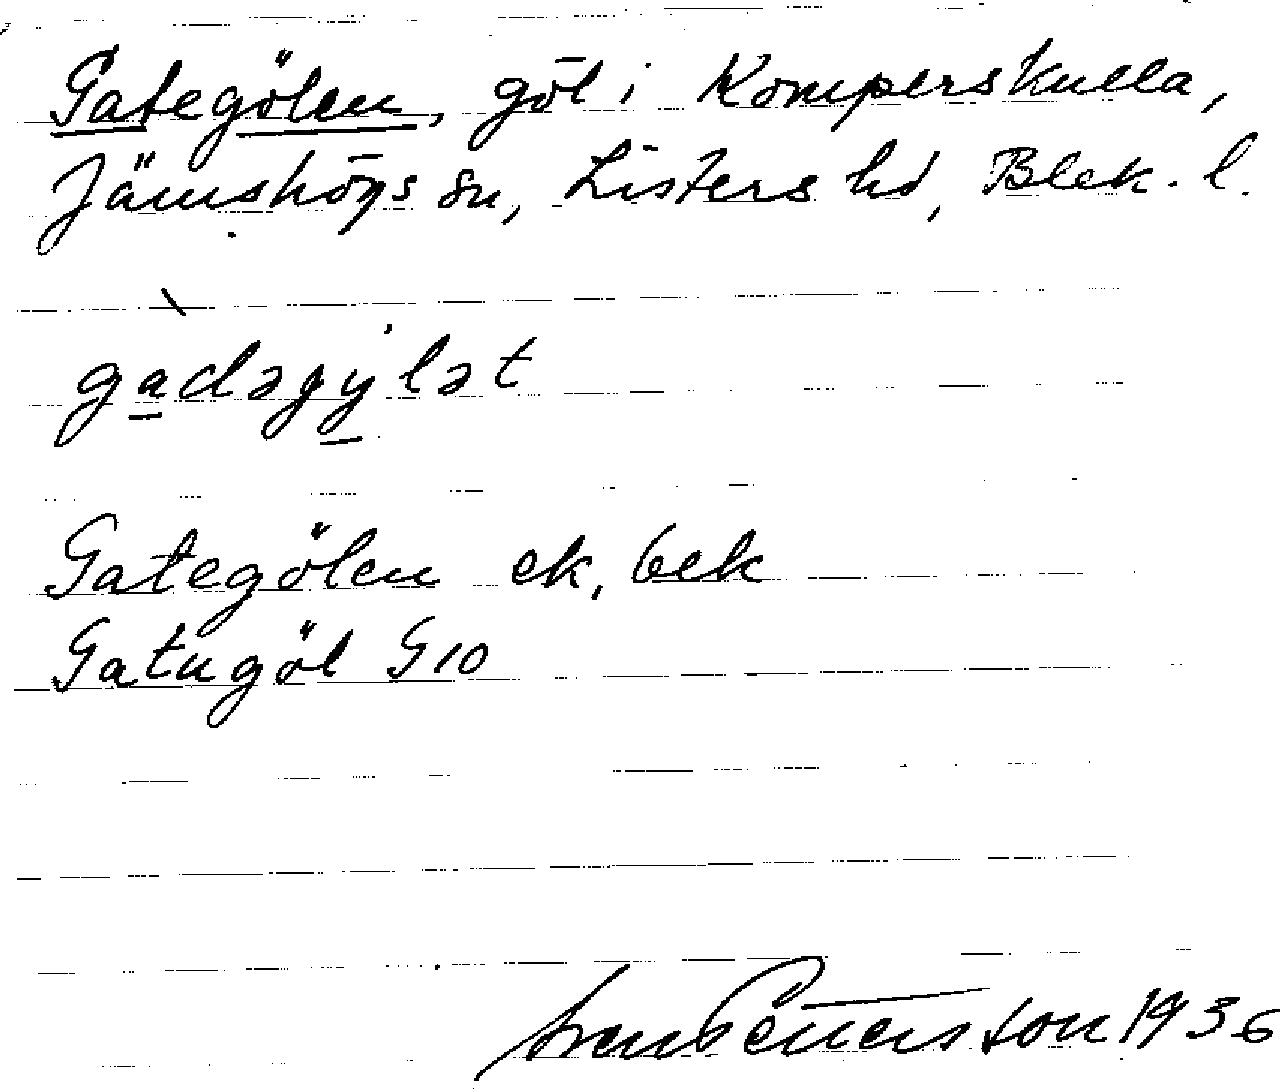 Gategölen, göl i Komperskulla,
Jämshögs sn, Listers hd, Blek. l.
gadəgylət
Gategölen ek, bek
Gatugöl G10
Sven Pettersson 1936